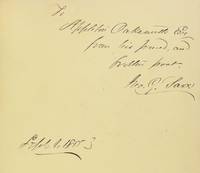 To
Appleton Oaksmith Esq
from his friend, and
brother poet.
Jno. G. Saxe
Sept. 1, 1853